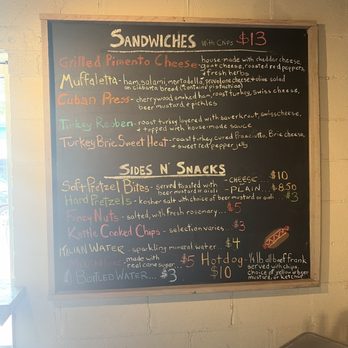 SANDWICHES WITH CHIPS $13
Grilled Pimento Cheese - house-made with cheddar cheese,
goat cheese, roasted red peppers,
+ fresh herbs
Muffaletta - ham, salami, mortadella, provolone cheese + olive salad
on ciabatta bread (contains pistachios)
Cuban Press - cherrywood smoked ham, roast turkey, swiss cheese,
beer mustard + pickles
Turkey Reuben - roast turkey layered with sauerkraut, swiss cheese,
+ topped with house-made sauce
Turkey Brie Sweet Heat - roast turkey, cured Prosciutto, Brie cheese,
+ sweet red pepper jelly
SIDES N' SNACKS
Soft Pretzel Bites - served toasted with - CHEESE... $10
beer mustard or aioli - PLAIN... $8.50
Hard Pretzels - kosher salt with choice of beer mustard or aioli... $3
Spicy Nuts - salted, with fresh rosemary... $5
Kettle Cooked Chips - selection varies... $3
ITALIAN WATER - sparkling mineral water... $4
made with
real cane sugar... $5
BOTTLED WATER... $3
Hotdog - 1/4 lb all beef frank
$10 served with chips
choice of yellow or beer
mustard, or ketchup